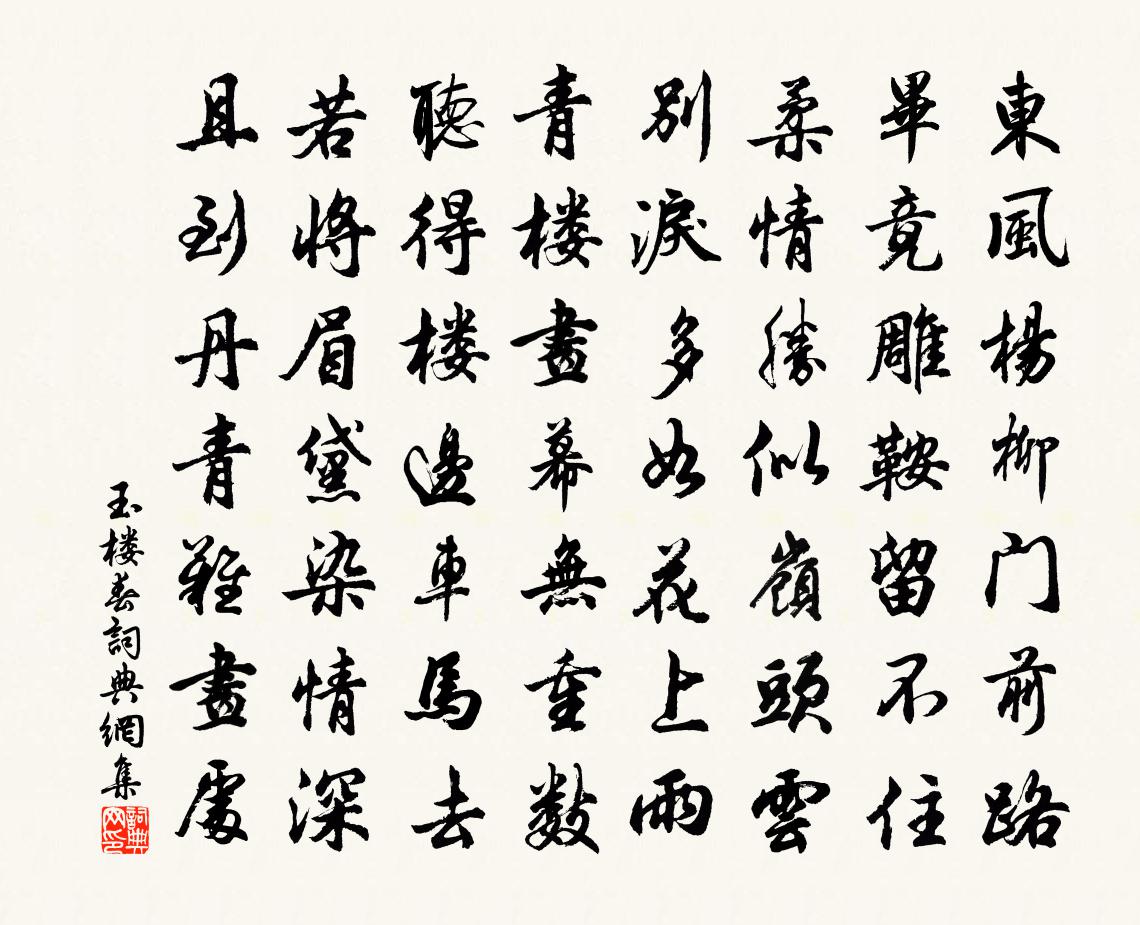 東風楊柳门前路
畢竟雕鞍留不住
柔情勝似嶺頭雲
別淚多如花上雨
青楼畫幕無重數
聽得楼邊車馬去
若將眉黛染情深
且到丹青難畫處
玉楼春詞典網集
詞典网印